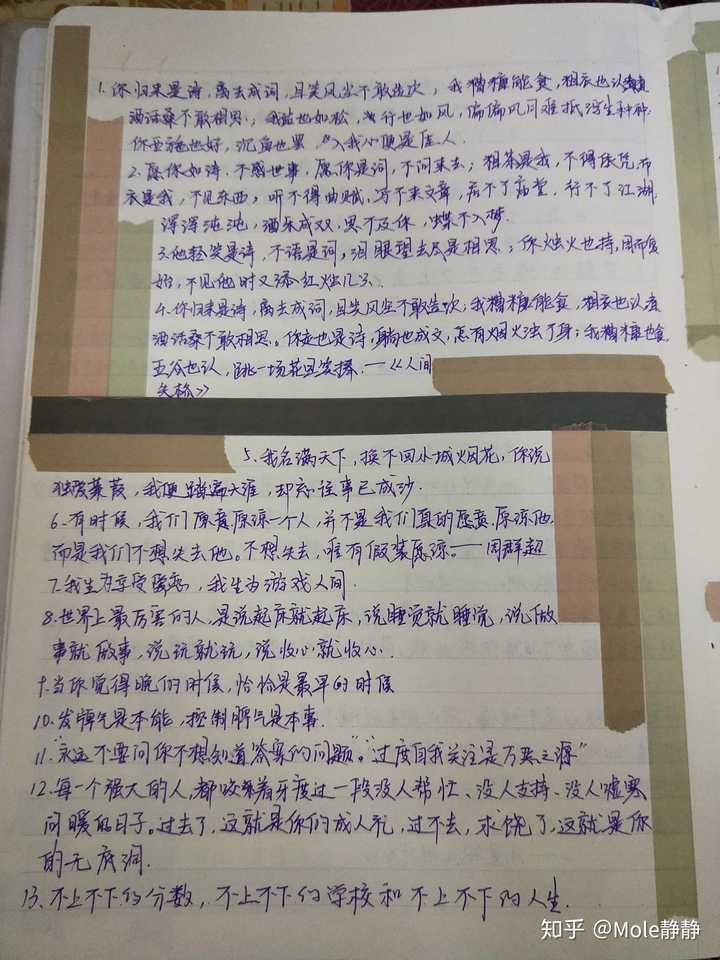 1. 你归来是诗，离去成词，且笑风尘不敢造次，我糟糠能食，粗衣也认煮
酒话桑不敢相思，我站也如松，行也如风，偏偏风月难抵浮生种种
你也好，沉鱼也罢，入我心便是佳人.
2. 愿你如诗，不惑世事，愿你是词，不问来去；粗茶是我，不得
衣是我，不见东西，听不得曲赋，写不来文章，居不了庙堂，行不了江湖.
浑浑沌沌，酒乐成双，思不及你，蝶不入梦.
3. 他轻笑是诗，不语是词，泪眼望去尽是相思；你烛火也持，周而复
始，不见他时又添红烛几
4. 你归来是诗，离去成词，且笑风尘不敢造次；我糟糠能食，粗衣也认煮
酒话桑不敢相思。你走也是诗，躺也成文，怎有烟火浊了身；我糟糠也食
五谷也认，跳一场花《人间
失格》
5. 我名满天下，换不回小城烟花，你说
独爱蒹葭，我便踏遍天涯，却忘往事已成沙.
6. 有时候，我们愿意原谅一个人，并不是我们真的愿意原谅他.
而是我们不想失去他。不想失去，唯有假装原谅。——周群超
7. 我生为享受，我生为游戏人间.
8. 世界上最厉害的人，是说起床就起床，说睡觉就睡觉，说做
事就做事，说玩就玩，说收心就收心.
9. 当你觉得晚的时候，恰恰是最早的时候
10. 发脾气是本能，控制脾气是本事.
11. "永远不要问你不想知道答案的问题""过度自我关注是万恶之源"
12. 每一个强大的人，都咬着牙度过一段没人帮忙、没人支持、没人嘘寒
问暖的日子。过去了，这就是你们成人礼，过不去，求饶了，这就是你
的无底洞.
13. 不上不下的分数，不上不下的学校和不上不下的人生.
知乎 @Mole静静